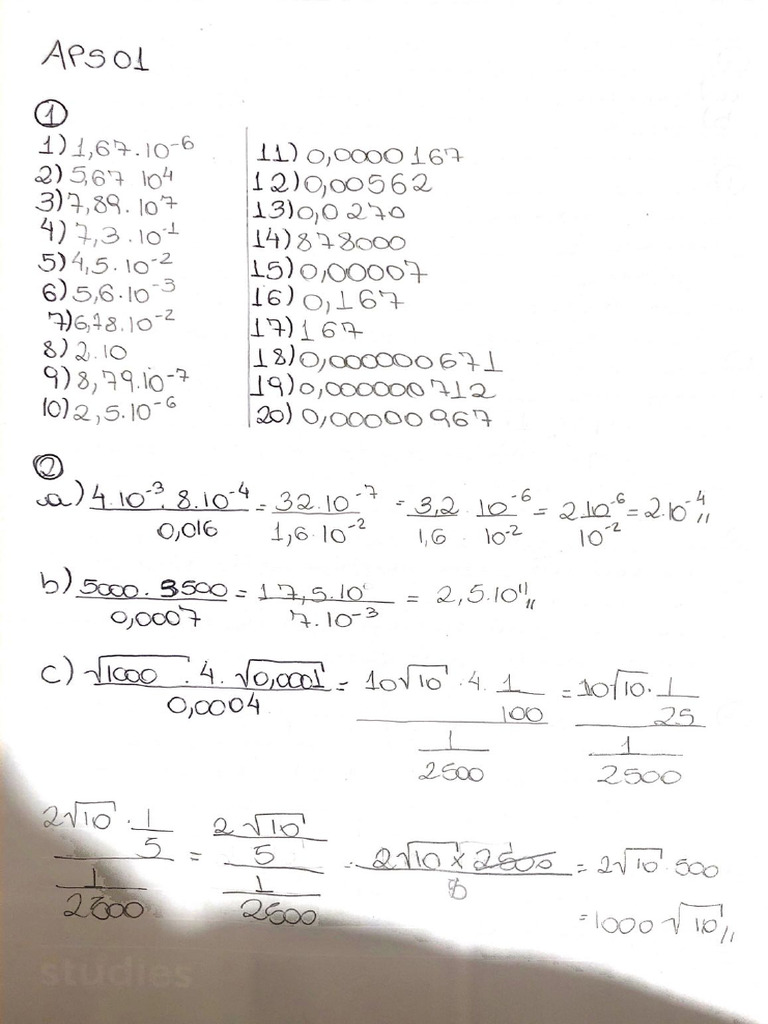 APS 01
①
1) 1,67.10⁻⁶
2) 5,67 10⁴
3) 7,89.10⁷
4) 7,3.10⁻¹
5) 4,5.10⁻²
6) 5,6.10⁻³
7) 6,78.10⁻²
8) 2.10
9) 8,79.10⁻⁷
10) 2,5.10⁻⁶
11) 0,0000167
12) 0,00562
13) 0,0270
14) 878000
15) 0,00007
16) 0,167
17) 167
18) 0,000000671
19) 0,000000712
20) 0,00000967
②
a) 4.10⁻³.8.10⁻⁴/0,016 = 32.10⁻⁷/1,6.10⁻² = 3,2/1,6 . 10⁻⁶/10⁻² = 2 10⁻⁶/10⁻² = 2.10⁻⁴,,
b) 5000.3500/0,0007 = 17,5.10/7.10⁻³ = 2,5.10¹¹,,
c) √1000 . 4 . √0,0001/0,0004 = (10√10 . 4 . 1/100)/(1/2500) = (10√10 . 1/25)/(1/2500)
(2√10 . 1/5)/(1/2500) = (2√10/5)/(1/2500) = 2√10 x 2500/5 = 2√10 . 500
= 1000√10,,
studies